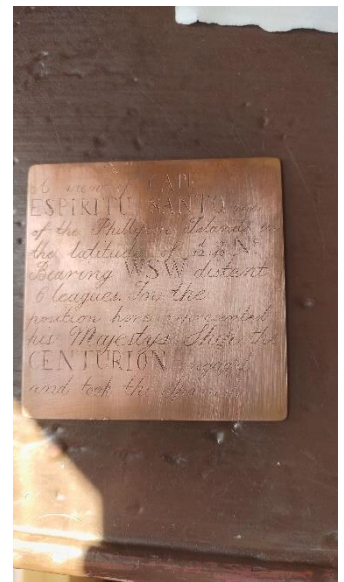 A view of CAPE
ESPIRITU SANTO
of the Phillipine Islands in
the latitude of 12.40 N.
Bearing WSW distant
6 leagues. In the
position here represented
his Majestys Ship the
CENTURION engag'd
and took the